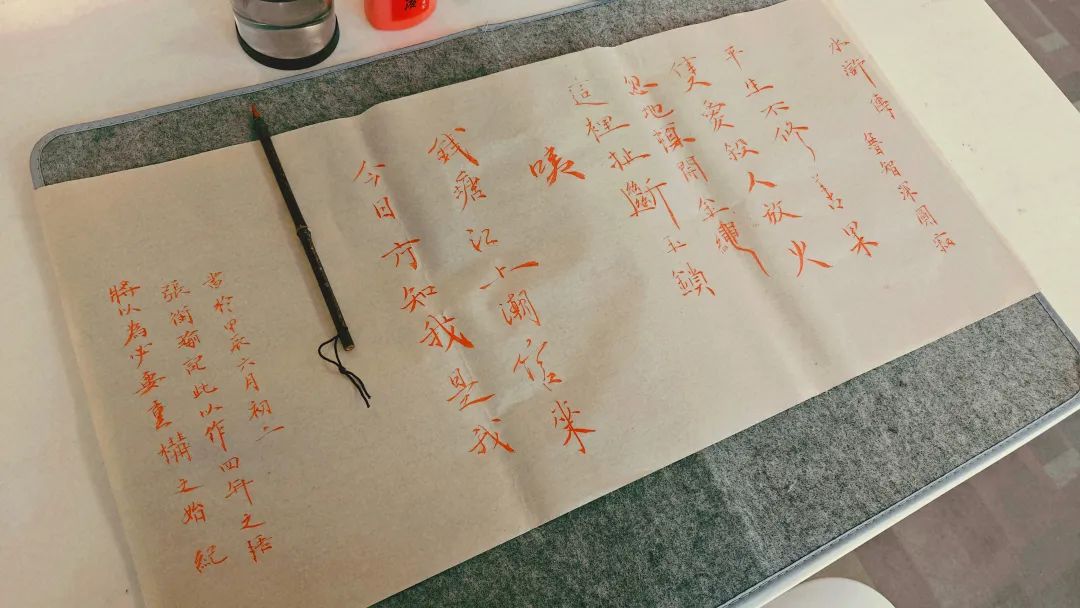 水滸傳 魯智深圓寂
平生不修善果
隻愛殺人放火
忽地頓開金繩
這裡扯斷玉鎖
咦
錢塘江上潮信來
今日方知我是我
書於甲辰六月初二
張衡瑜記此以作四年之悟
將以為少要重構之始 紀